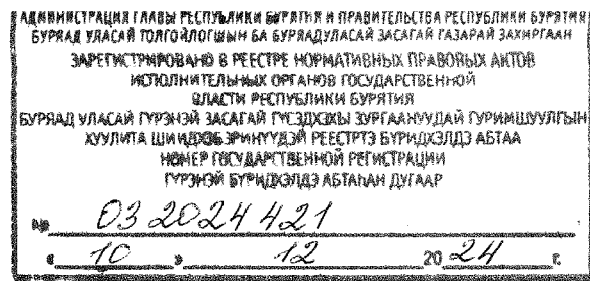 АДМИНИСТРАЦИЯ ГЛАВЫ РЕСПУБЛИКИ БУРЯТИЯ И ПРАВИТЕЛЬСТВА РЕСПУБЛИКИ БУРЯТИЯ
БУРЯАД УЛАСАЙ ТОЛГОЙЛОГШЫН БА БУРЯАДУЛАСАЙ ЗАСАГАЙ ГАЗАРАЙ ЗАХИРГААН
ЗАРЕГИСТРИРОВАНО В РЕЕСТРЕ НОРМАТИВНЫХ ПРАВОВЫХ АКТОВ
ИСПОЛНИТЕЛЬНЫХ ОРГАНОВ ГОСУДАРСТВЕННОЙ
ВЛАСТИ РЕСПУБЛИКИ БУРЯТИЯ
БУРЯАД УЛАСАЙ ГҮРЭНЭЙ ЗАСАГАЙ ГҮЙСЭДХЭХЫ ЗУРГААНУУДАЙ ГУРИМШУУЛГЫН
ХУУЛИТА ШИИДХЭБЭРИНҮҮДЭЙ РЕЕСТРТЭ БҮРИДХЭЛДЭ АБТАА
НОМЕР ГОСУДАРСТВЕННОЙ РЕГИСТРАЦИИ
ГҮРЭНЭЙ БҮРИДХЭЛДЭ АБТАҺАН ДУГААР
№ 03 2024 421
« 10 » 12 20 24 г.